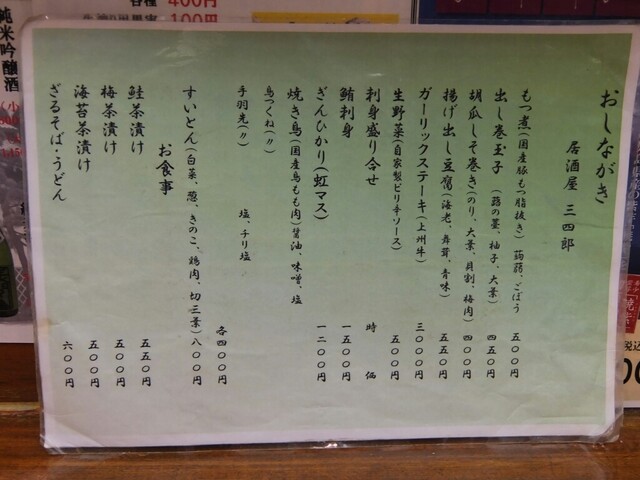 おしながき
居酒屋 三四郎
もつ煮(国産豚もつ脂抜き) 蒟蒻、ごぼう 五〇〇円
出し巻玉子 (蕗の薹、柚子、大葉) 四五〇円
胡瓜しそ巻き(のり、大葉、貝割、梅肉) 四〇〇円
揚げ出し豆腐(海老、舞茸、青味) 五五〇円
ガーリックステーキ(上州牛) 三〇〇〇円
生野菜(自家製ピリ辛ソース) 五〇〇円
刺身盛り合せ 時 価
鮪刺身 一五〇〇円
ぎんひかり(虹マス) 一二〇〇円
焼き鳥(国産鳥もも肉)醤油、味噌、塩
鳥つくね(〃)
手羽先(〃) 塩、チリ塩
各四〇〇円
すいとん(白菜、葱、きのこ、鶏肉、切三葉)八〇〇円
お食事
鮭茶漬け 五五〇円
梅茶漬け 五〇〇円
海苔茶漬け 五〇〇円
ざるそば・うどん 六〇〇円
純米吟醸酒
各種 400円
100円
税込